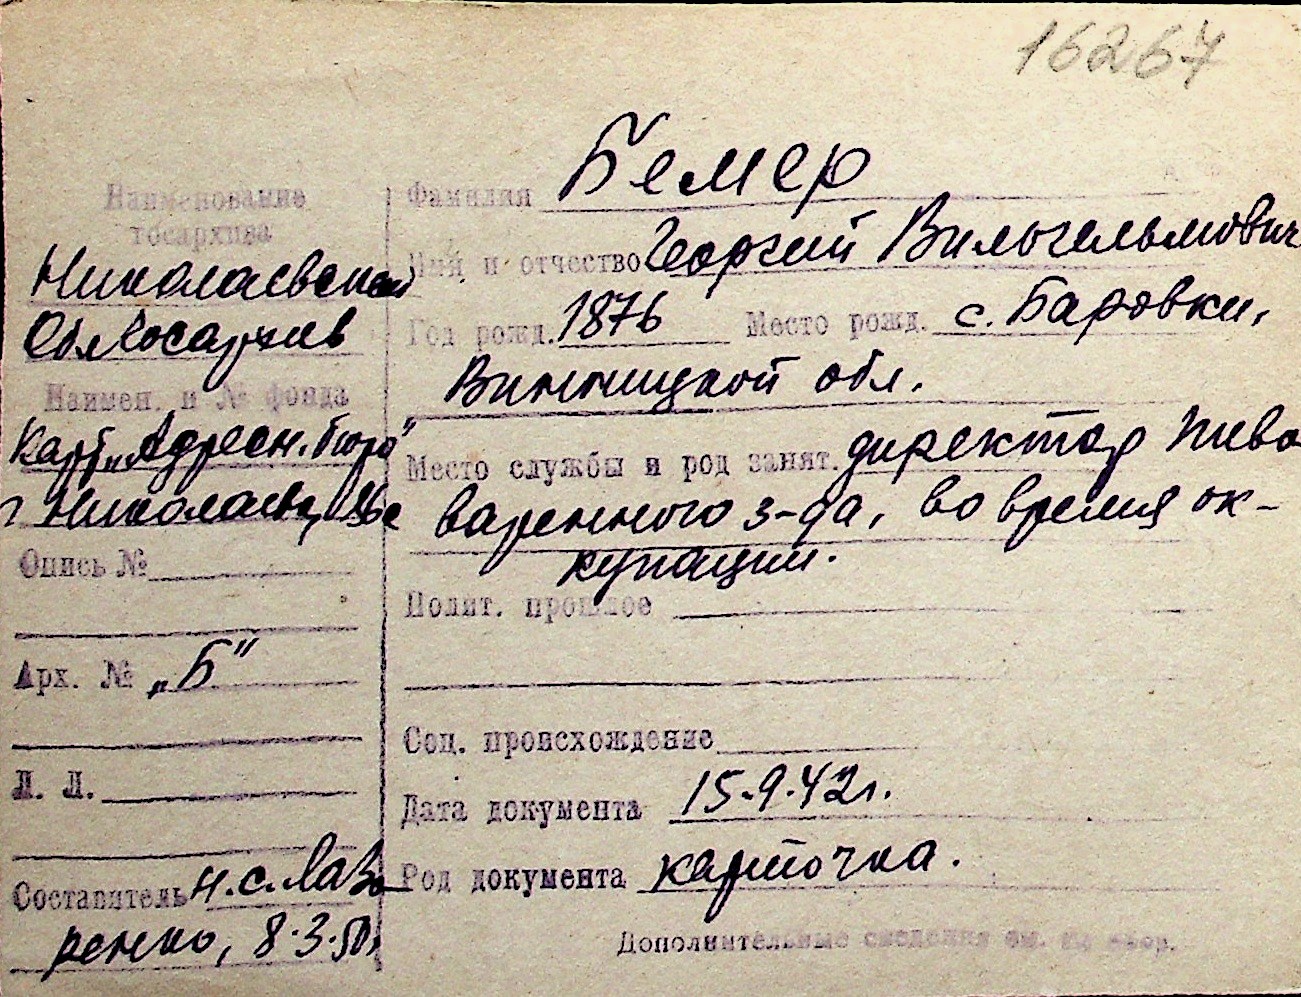 16267
Наименование
госархива
Николаевский
Облгосархив
Наимен. и № фонда
Карт. „Адресн. бюро"
г. Николаева,
Опись №
Арх. № „Б"
Л. Л.
Составитель Н.С. Лаза
ренко, 8.3.50г
Фамилия Бемер
Имя и отчество Георгий Вильгельмович
Год рожд. 1876 Место рожд. с. Баровки,
Винницкой обл.
Место службы и род занят. директор Пиво
варенного з-да, во время ок-
купации.
Полит. прошлое
Соц. происхождение
Дата документа 15.9.42г.
Род документа карточка.
Дополнительные сведения см. на обор.